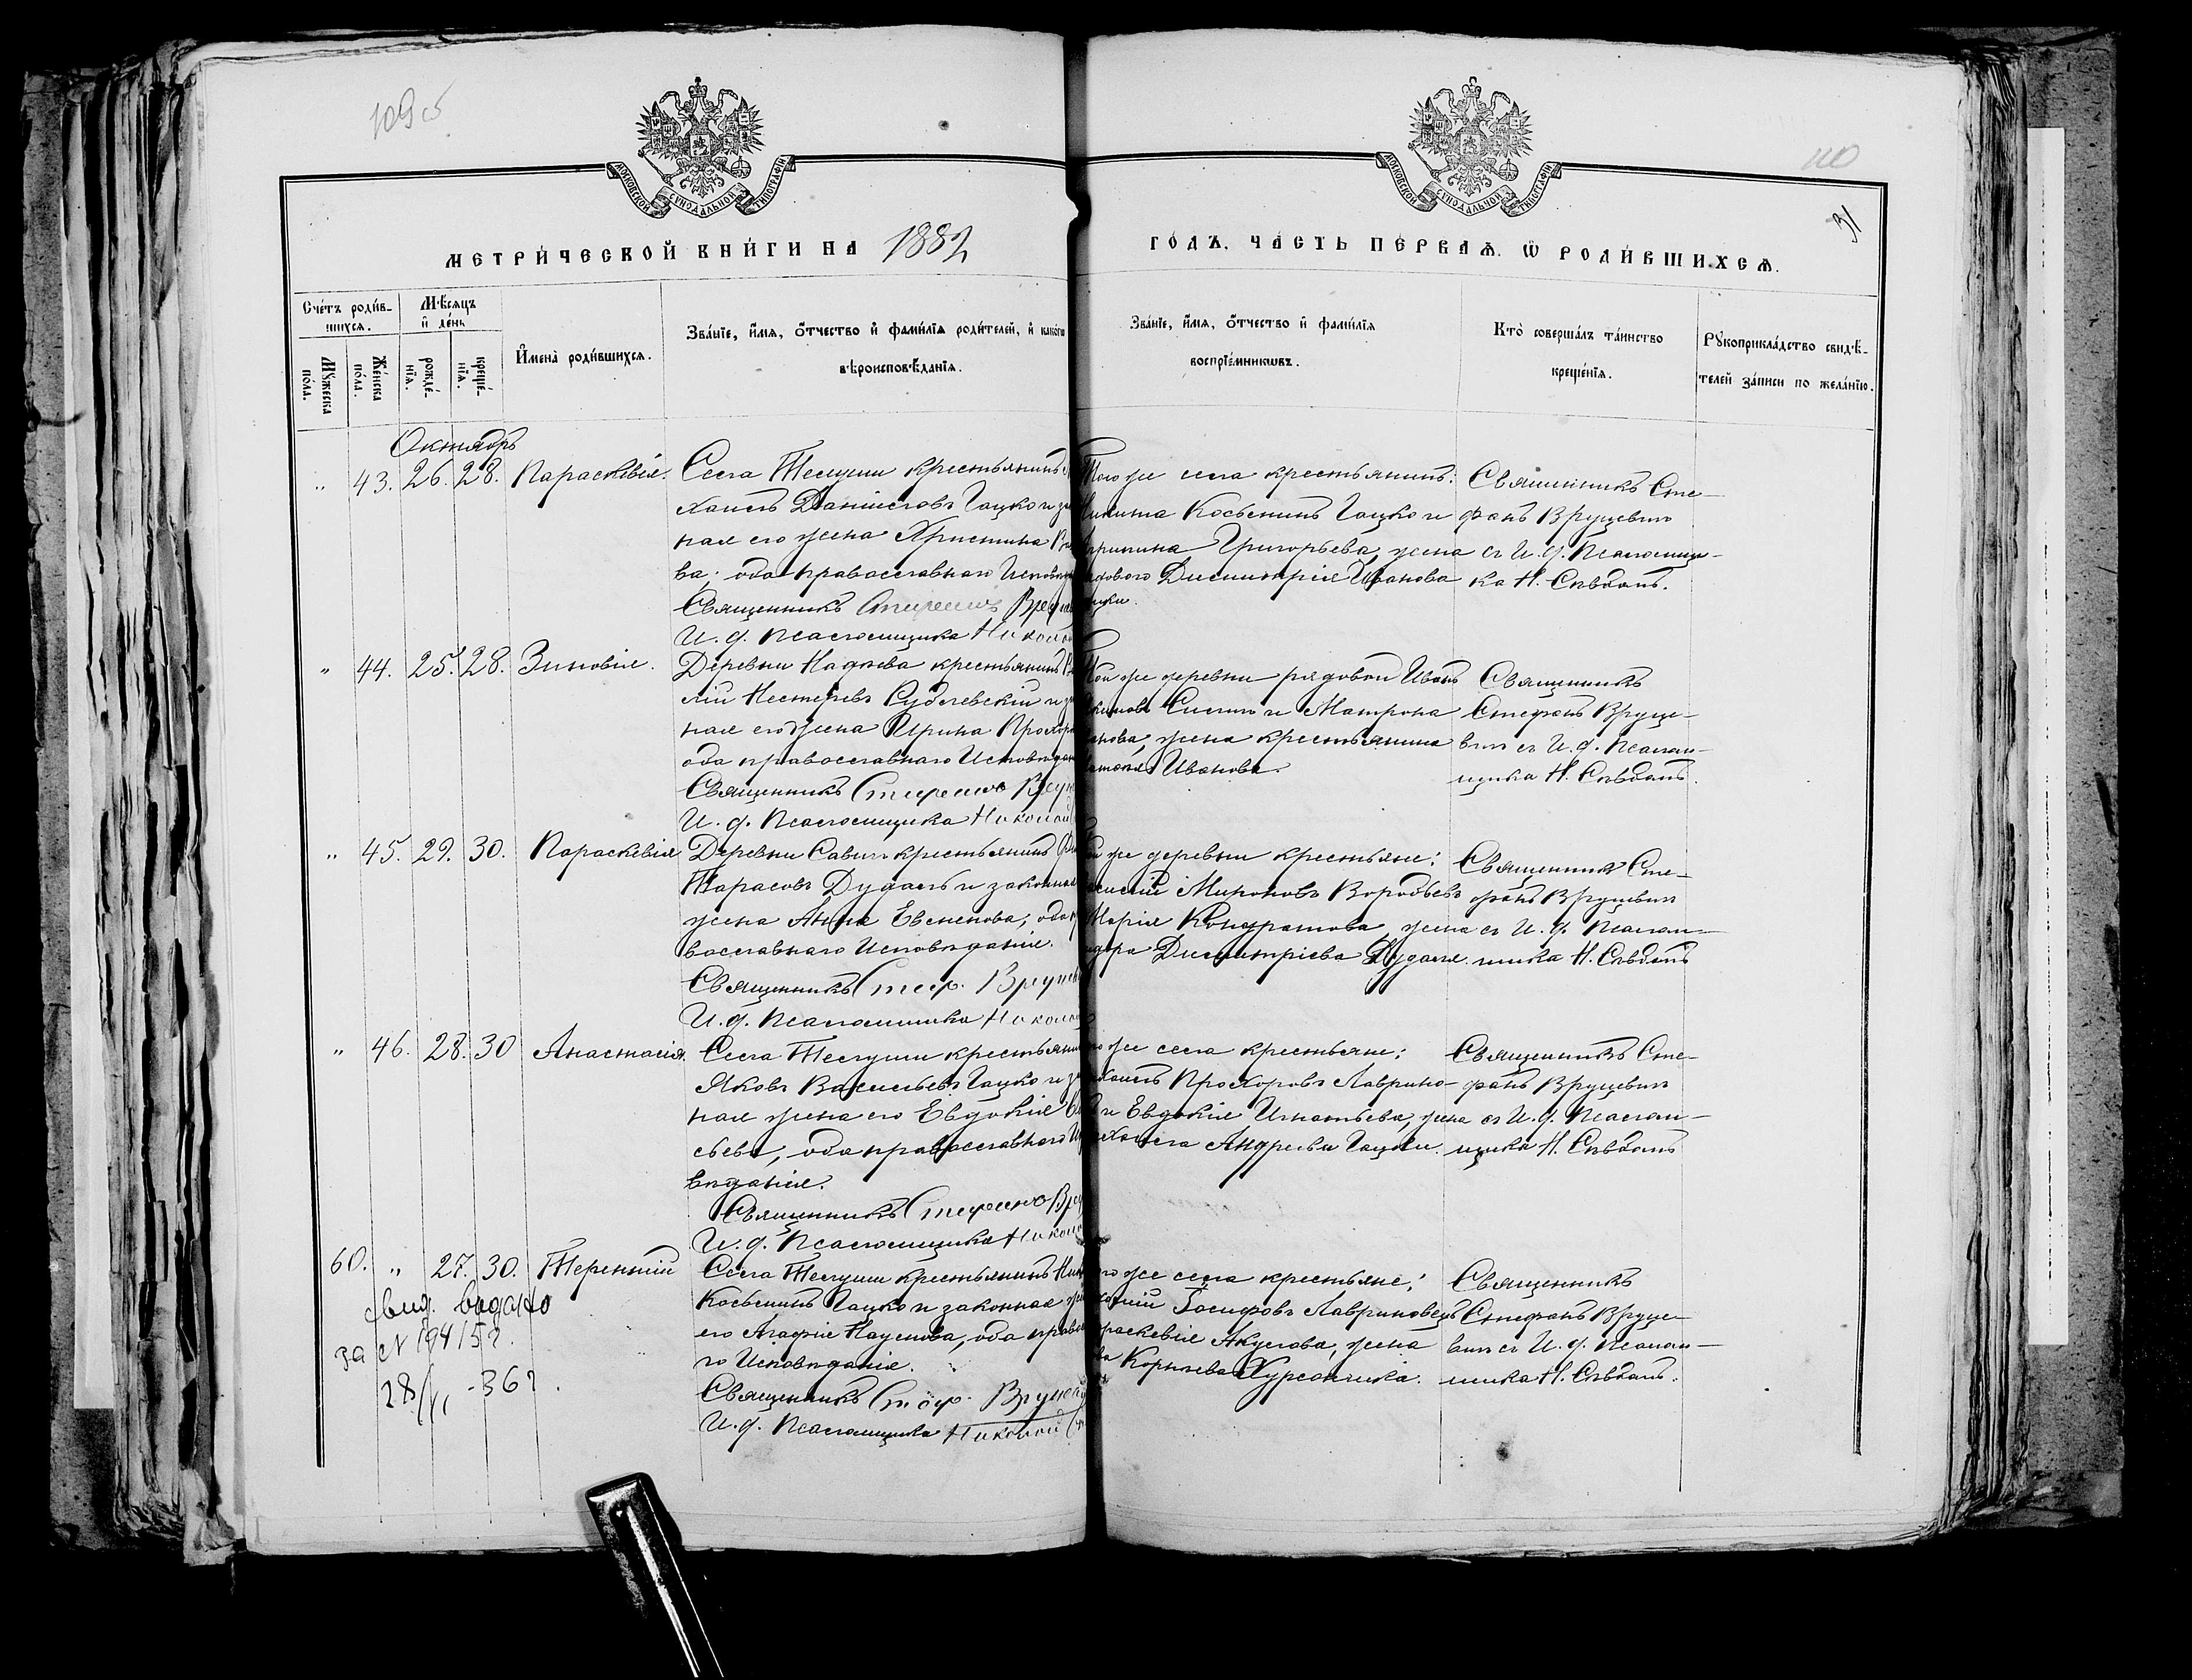 109 об
110
31
МОСКОВСКОЙ СѴНОДАЛЬНОЙ ТИПОГРАФІИ
МОСКОВСКОЙ СѴНОДАЛЬНОЙ ТИПОГРАФІИ
МЕТРИ́ЧЕСКОЙ КНИ́ГИ НА 1882
ГО́ДЪ, ЧА́СТЬ ПЕ́РВАѦ. Ѽ РОДИ́ВШИХСѦ.
Сче́тъ роди́в-
шихсѧ.
Мꙋ́жеска
по́ла.
Же́нска
по́ла.
Мѣ́сяцъ
и҆ де́нь
рожде́-
нїѧ.
креще́-
нїѧ.
И҆мена̀ роди́вшихсѧ.
Зва́нїе, и҆́мѧ, ѻ҆́тчество и҆ фами́лїѧ роди́телей, и҆ како́гѡ
вѣроисповѣ́данїѧ.
Зва́нїе, и҆́мѧ, ѻ҆́тчество и҆ фами́лїѧ
воспрїе́мникѡвъ.
Кто̀ соверша́лъ та́инство
креще́нїѧ.
Рꙋкоприкла́дство свидѣ́-
телей за́писи по жела́нїю.
Октябрь
" 43. 26. 28. Параскевія.
Села Телуши крестьянинъ
хаилъ Данииловъ Гацко и за
ная его жена Христина
ва; оба православнаго Исповѣда
Священникъ Стефанъ Вруце
И. д. Псаломщика Никола
Того же села крестьянинъ:
Никита Косьминъ Гацко и
Григорьева, жена
рядового Димитрія Иванова
Священникъ Сте-
фанъ Вруцевич
съ И. д. Псаломщи-
ка Н. Сѣвбатъ.
" 44. 25. 28. Зиновія.
Деревни Надѣева крестьянинъ
лій Нестеровъ Судлевскій и за
ная его жена Ирина Прохоро
оба православнаго Исповѣдан
Священникъ Стефанъ Вруц
И. д. Псаломщика Николай
Той же деревни рядовой Иванъ
и Матрона
жена крестьянина
Иванова.
Священникъ
Стефанъ Вруце-
вич съ И. д. Псалом-
щика Н. Сѣвбатъ.
" 45. 29. 30. Параскевія
Деревни Савич крестьянинъ
Тарасовъ Дудаль и законная
жена Анна Евменова, оба п
вославнаго Исповѣданія.
Священникъ Стеф. Вруцев
И. д. Псаломщика Никола
же деревни крестьяне:
Мироновъ Воробьевъ
Марія Кондратова, жена
Димитріева Дудаля.
Священникъ Сте-
фанъ Вруцевич
съ И. д. Псалом-
щика Н. Сѣвбатъ
" 46. 28. 30 Анастасія.
Села Телуши крестьянин
Яковъ Васильевъ Гацко и за
ная жена его Евдокія
сьева, оба православнаго И
вѣданія.
Священникъ Стефанъ Вру
И. д. Псаломщика Никол
же села крестьяне:
хаилъ Прохоровъ Лаврино-
и Евдокія Игнатьева, жена
Михаила Андреева Гацки.
Священникъ Сте-
фанъ Вруцевич
съ И. д. Псалом-
щика Н. Сѣвбатъ
60. " 27. 30. Терентій
свид. выдано
за № 194 / 52.
28/VI - 36 г.
Села Телуши крестьянинъ Ник
Косьминъ Гацко и законная же
его Агафія Наумова, оба правос
го Исповѣданія.
Священникъ Стеф. Вруцев
И. д. Псаломщика Николай
же села крестьяне:
Іосифовъ Лавриновецъ
Параскевія Акулова, жена
Корнѣева Хурсанчика.
Священникъ
Стефанъ Вруце-
вич съ И. д. Псалом-
щика Н. Сѣвбатъ.